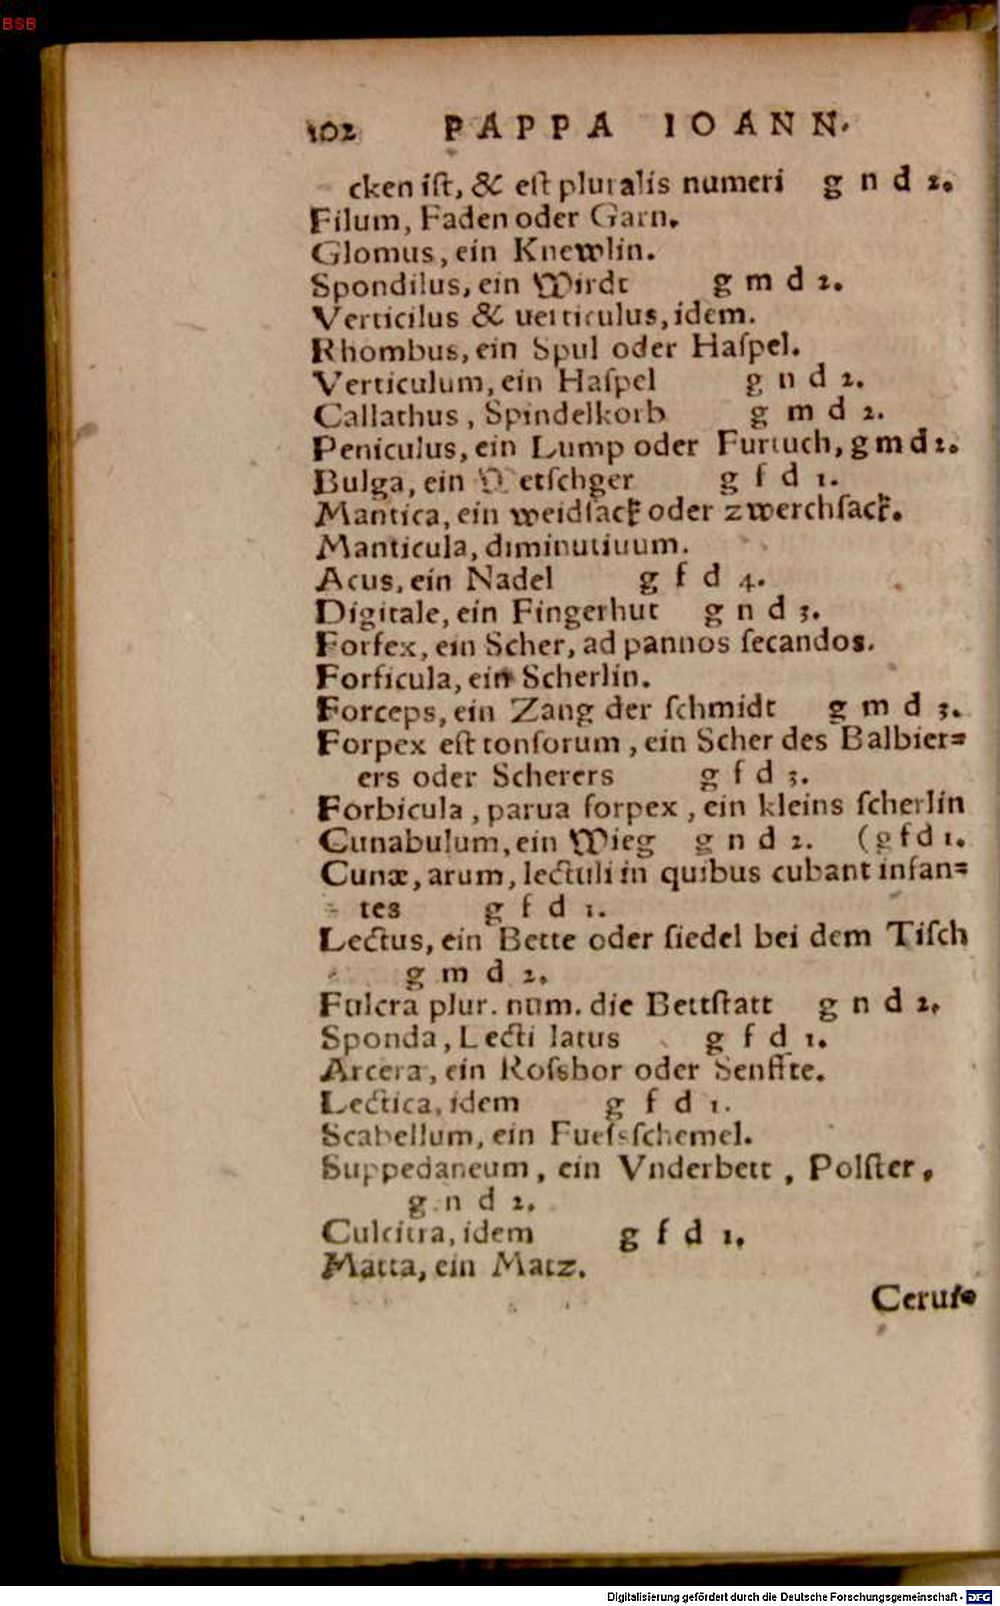 BSB
102 PAPPA IOANN.
cken iſt, & eſt pluralis numeri g n d 2.
Filum, Faden oder Garn.
Glomus, ein Knewlin.
Spondilus, ein Wirdt g m d 2.
Verticilus & uerticulus, idem.
Rhombus, ein Spul oder Haſpel.
Verticulum, ein Haſpel g n d 2.
Callathus, Spindelkorb g m d 2.
Peniculus, ein Lump oder Furtuch, g m d 2.
Bulga, ein Wetſchger g f d 1.
Mantica, ein weidſack oder zwerchſack.
Manticula, diminutiuum.
Acus, ein Nadel g f d 4.
Digitale, ein Fingerhut g n d 3.
Forfex, ein Scher, ad pannos ſecandos.
Forficula, ein Scherlin.
Forceps, ein Zang der ſchmidt g m d 3.
Forpex eſt tonſorum, ein Scher des Balbier=
ers oder Scherers g f d 3.
Forbicula, parua forpex, ein kleins ſcherlin
Cunabulum, ein Wieg g n d 2. (g f d 1.
Cunæ, arum, lectuli in quibus cubant infan=
tes g f d 1.
Lectus, ein Bette oder ſiedel bei dem Tiſch
g m d 2.
Fulcra plur. num. die Bettſtatt g n d 2.
Sponda, Lecti latus g f d 1.
Arcera, ein Roſsbor oder Senffte.
Lectica, idem g f d 1.
Scabellum, ein Fueſsſchemel.
Suppedaneum, ein Vnderbett, Polſter,
g n d 2.
Culcitra, idem g f d 1.
Matta, ein Matz.
Ceruſ
Digitalisierung gefördert durch die Deutsche Forschungsgemeinschaft - DFG